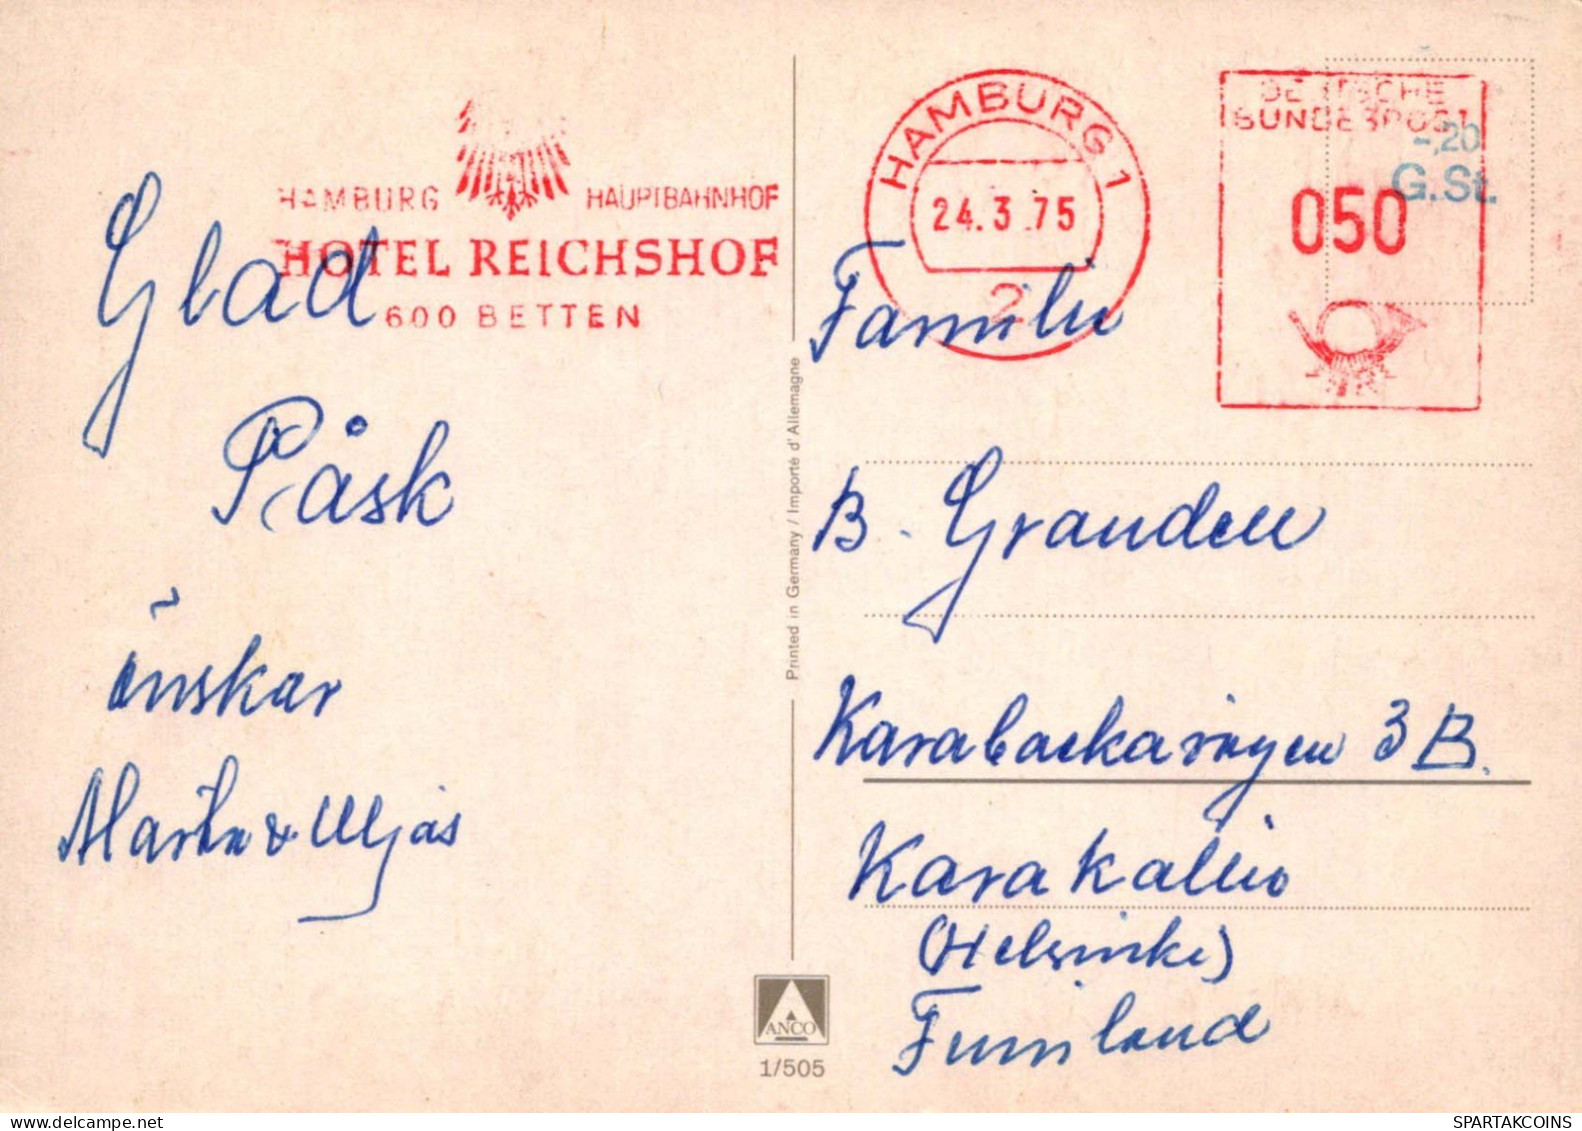 HAMBURG HAUPTBAHNHOF
HOTEL REICHSHOF
600 BETTEN
HAMBURG 1
24.3.75
2
DEUTSCHE
BUNDESPOST
-,20
G.St.
050
Glad
Påsk
önskar
Martha &
Familie
B. Granden
3 B.
Karakallio
(Helsinki)
Finnland
Printed in Germany / Importé d'Allemagne
ANCO
1/505
SPARTAKCOINS